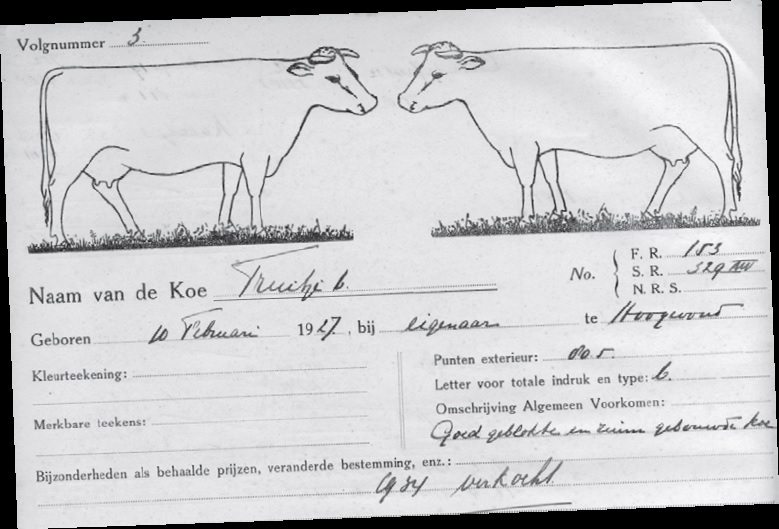 Volgnummer 3.
Naam van de Koe Truitje 6.
No. F. R. 153
S. R. 329
N. R. S.
Geboren 10 Februari 1927, bij eigenaar te Hoogwoud
Kleurteekening:
Merkbare teekens:
Punten exterieur: 80.5.
Letter voor totale indruk en type: b.
Omschrijving Algemeen Voorkomen:
Goed geblokte en ruim gebouwde koe
Bijzonderheden als behaalde prijzen, veranderde bestemming, enz.:
1934 verkocht.